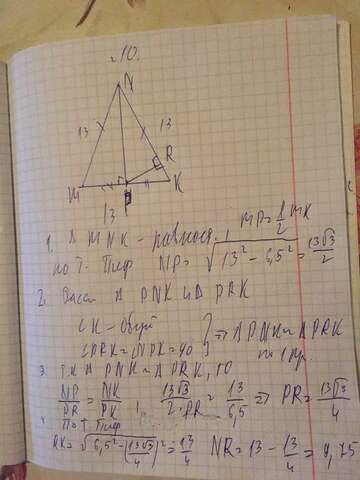 10.
N
13 13
R
M K
13 P
1. Δ MNK – равнос. MP = 1/2 MK
по т. Пиф NP = √13² – 6,5² = 13√3/2
2. Расс Δ PNK и Δ PRK
∠K – общий
∠PRK = ∠NPK = 90 } ⇒ Δ PNK ~ Δ PRK
по 1 пр.
3. т.к Δ PNK ~ Δ PRK, то
NP/PR = NK/PK 13√3/2·PR = 13/6,5 ⇒ PR = 13√3/4
4 По т. Пиф
RK = √6,5² – (13√3/4)² = 13/4 NR = 13 – 13/4 = 9,75